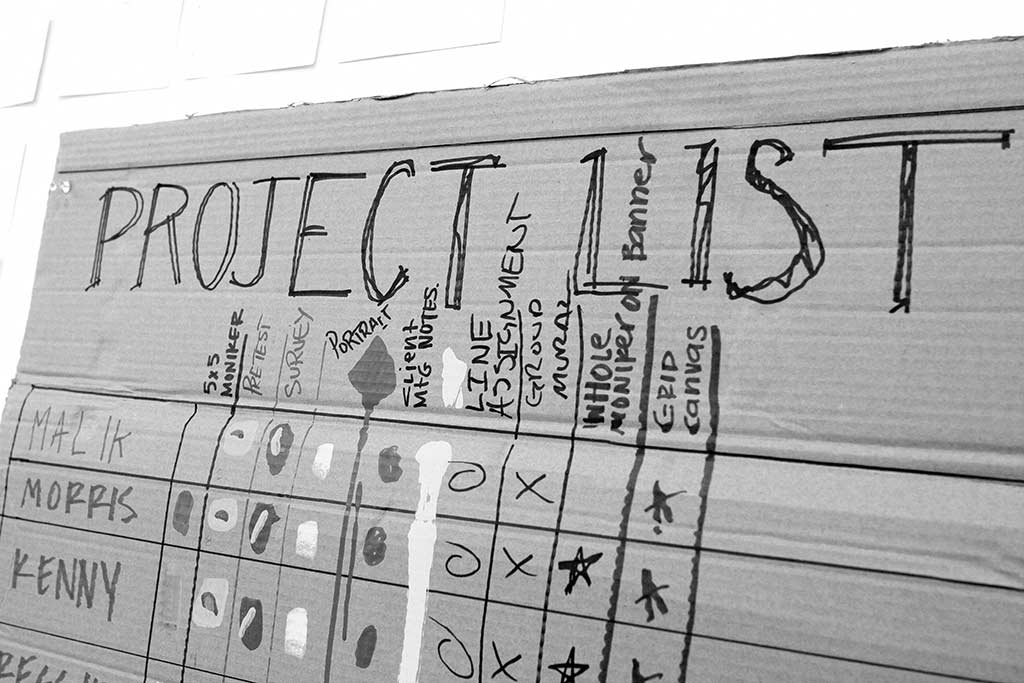 PROJECT LIST
5x5
MONIKER
PRETEST
SURVEY
PORTRAIT
Client
MtG NOTES.
LINE
ASSIGNMENT
GROUP
MURAL
WHOLE
MONIKER ON Banner
GRID
canvas
MALIK
MORRIS
KENNY